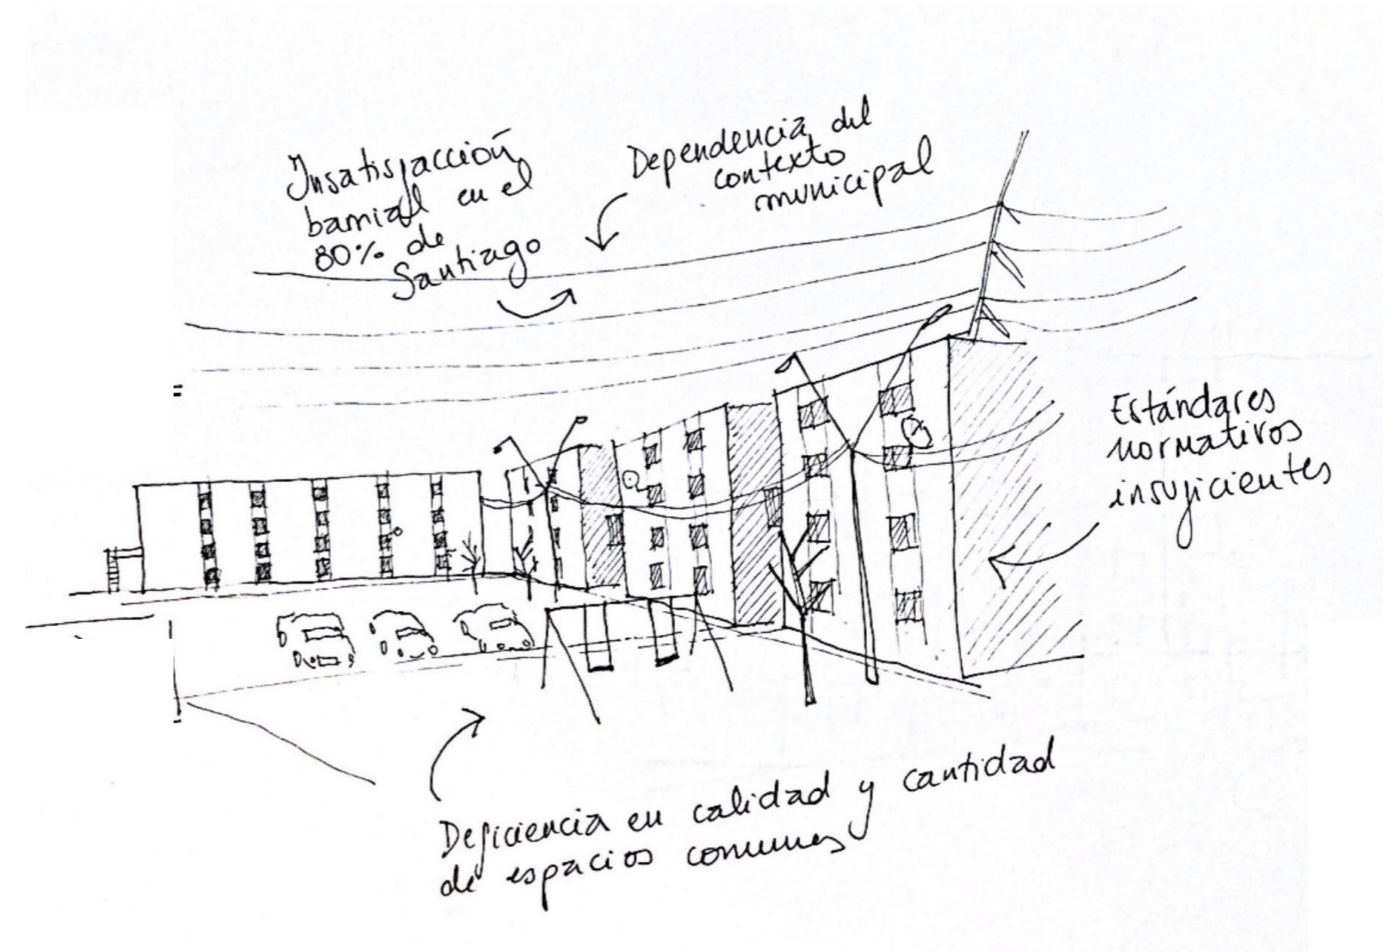 Insatisfacción
barrial en el
80% de
Santiago
Dependencia del
contexto
municipal
Estándares
normativos
insuficientes
Deficiencia en calidad y cantidad
de espacios comunes